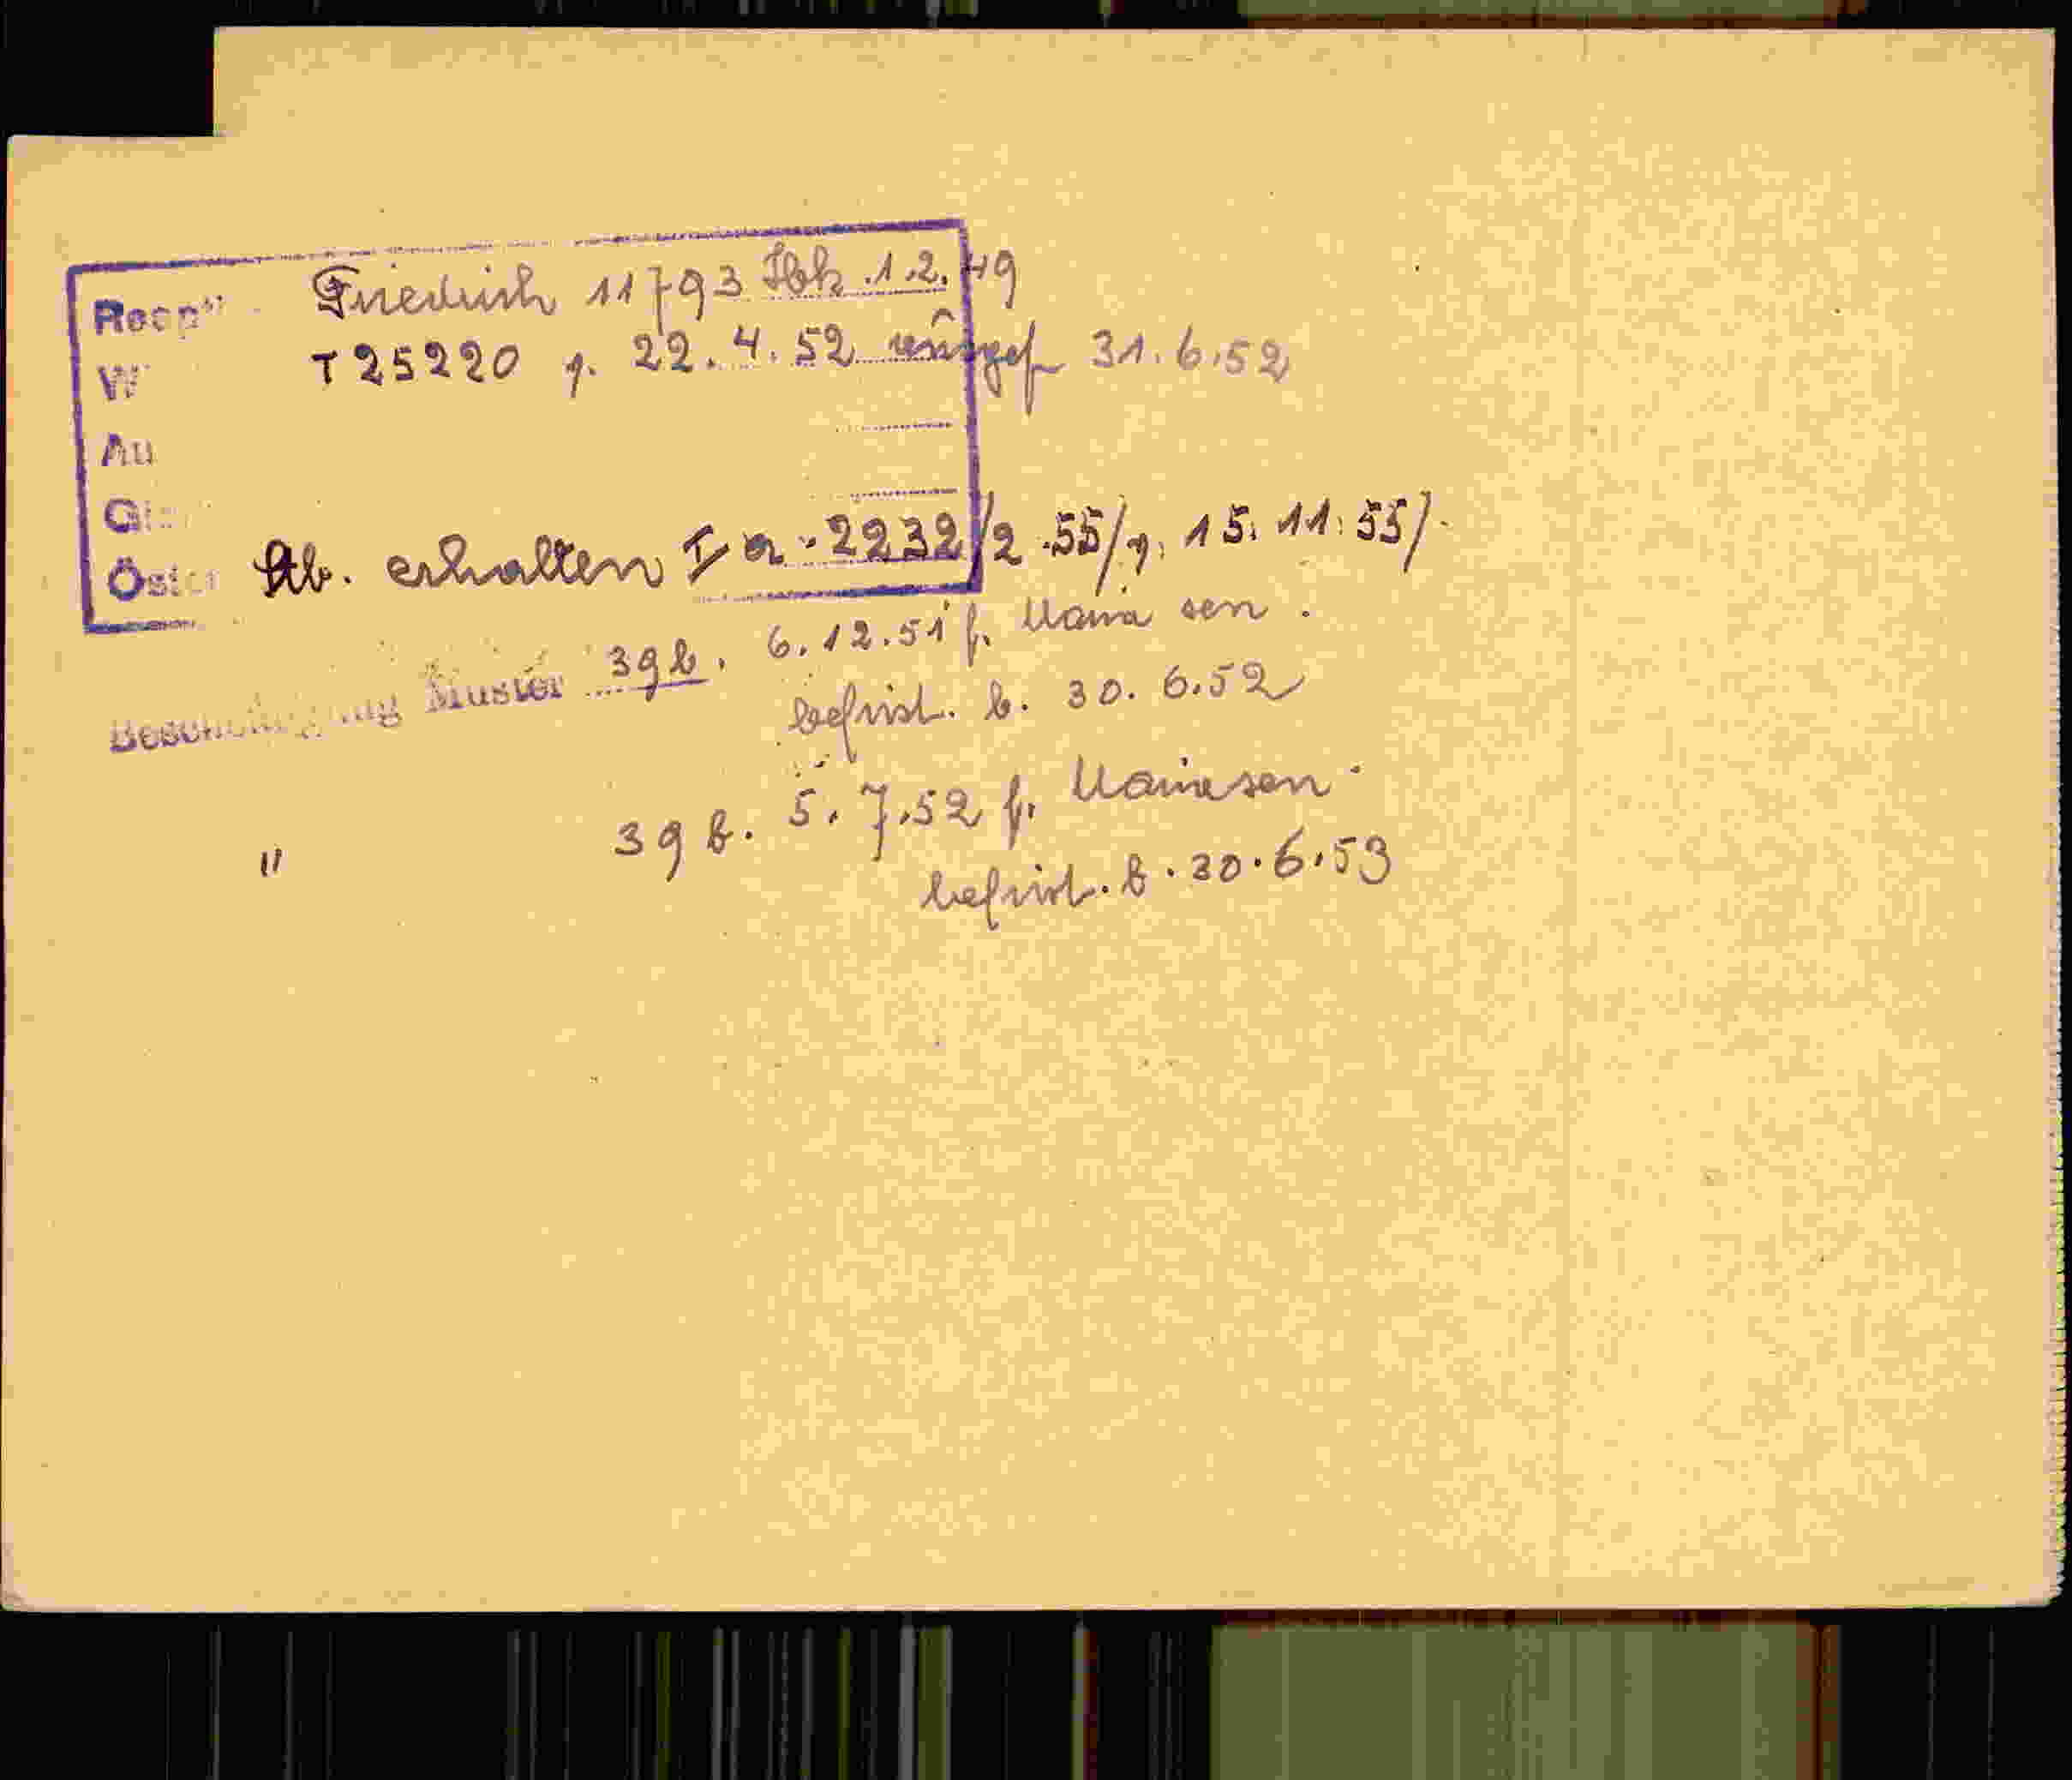 Friedrich 11793 Ibk. 1.2.49
T 25220 v. 22.4.52 31.6.52
W
Au
Stb. erhalten I a - 2232/2.55/v. 15.11.55/.
Öster
Bescheinigung Muster 39b. 6.12.51 f. Maria sen.
befrist. b. 30.6.52
" 39b. 5.7.52 f. Maria sen.
befrist. b. 30.6.53